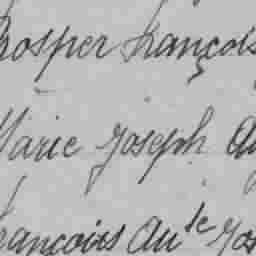 Prosper françois
Marie Joseph Au
françois Au^te Jos